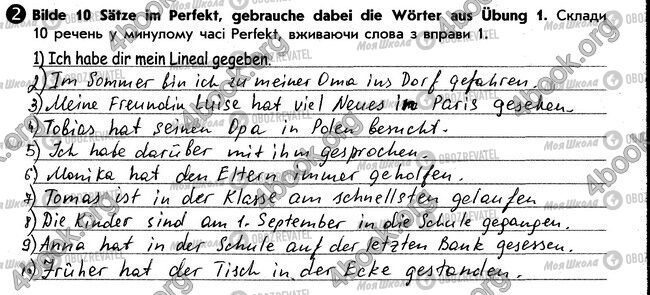 2 Bilde 10 Sätze im Perfekt, gebrauche dabei die Wörter aus Übung 1. Склади
10 речень у минулому часі Perfekt, вживаючи слова з вправи 1.
1) Ich habe dir mein Lineal gegeben.
2) Im Sommer bin ich zu meiner Oma ins Dorf gefahren.
3) Meine Freundin Luise hat viel Neues in Paris gesehen.
4) Tobias hat seinen Opa in Polen besucht.
5) Ich habe darüber mit ihm gesprochen.
6) Monika hat den Eltern immer geholfen.
7) Tomas ist in der Klasse am schnellsten gelaufen
8) Die Kinder sind am 1. September in die Schule gegangen.
9) Anna hat in der Schule auf der letzten Bank gesessen.
10) Früher hat der Tisch in der Ecke gestanden.
4book.org
Моя Школа
OBOZREVATEL